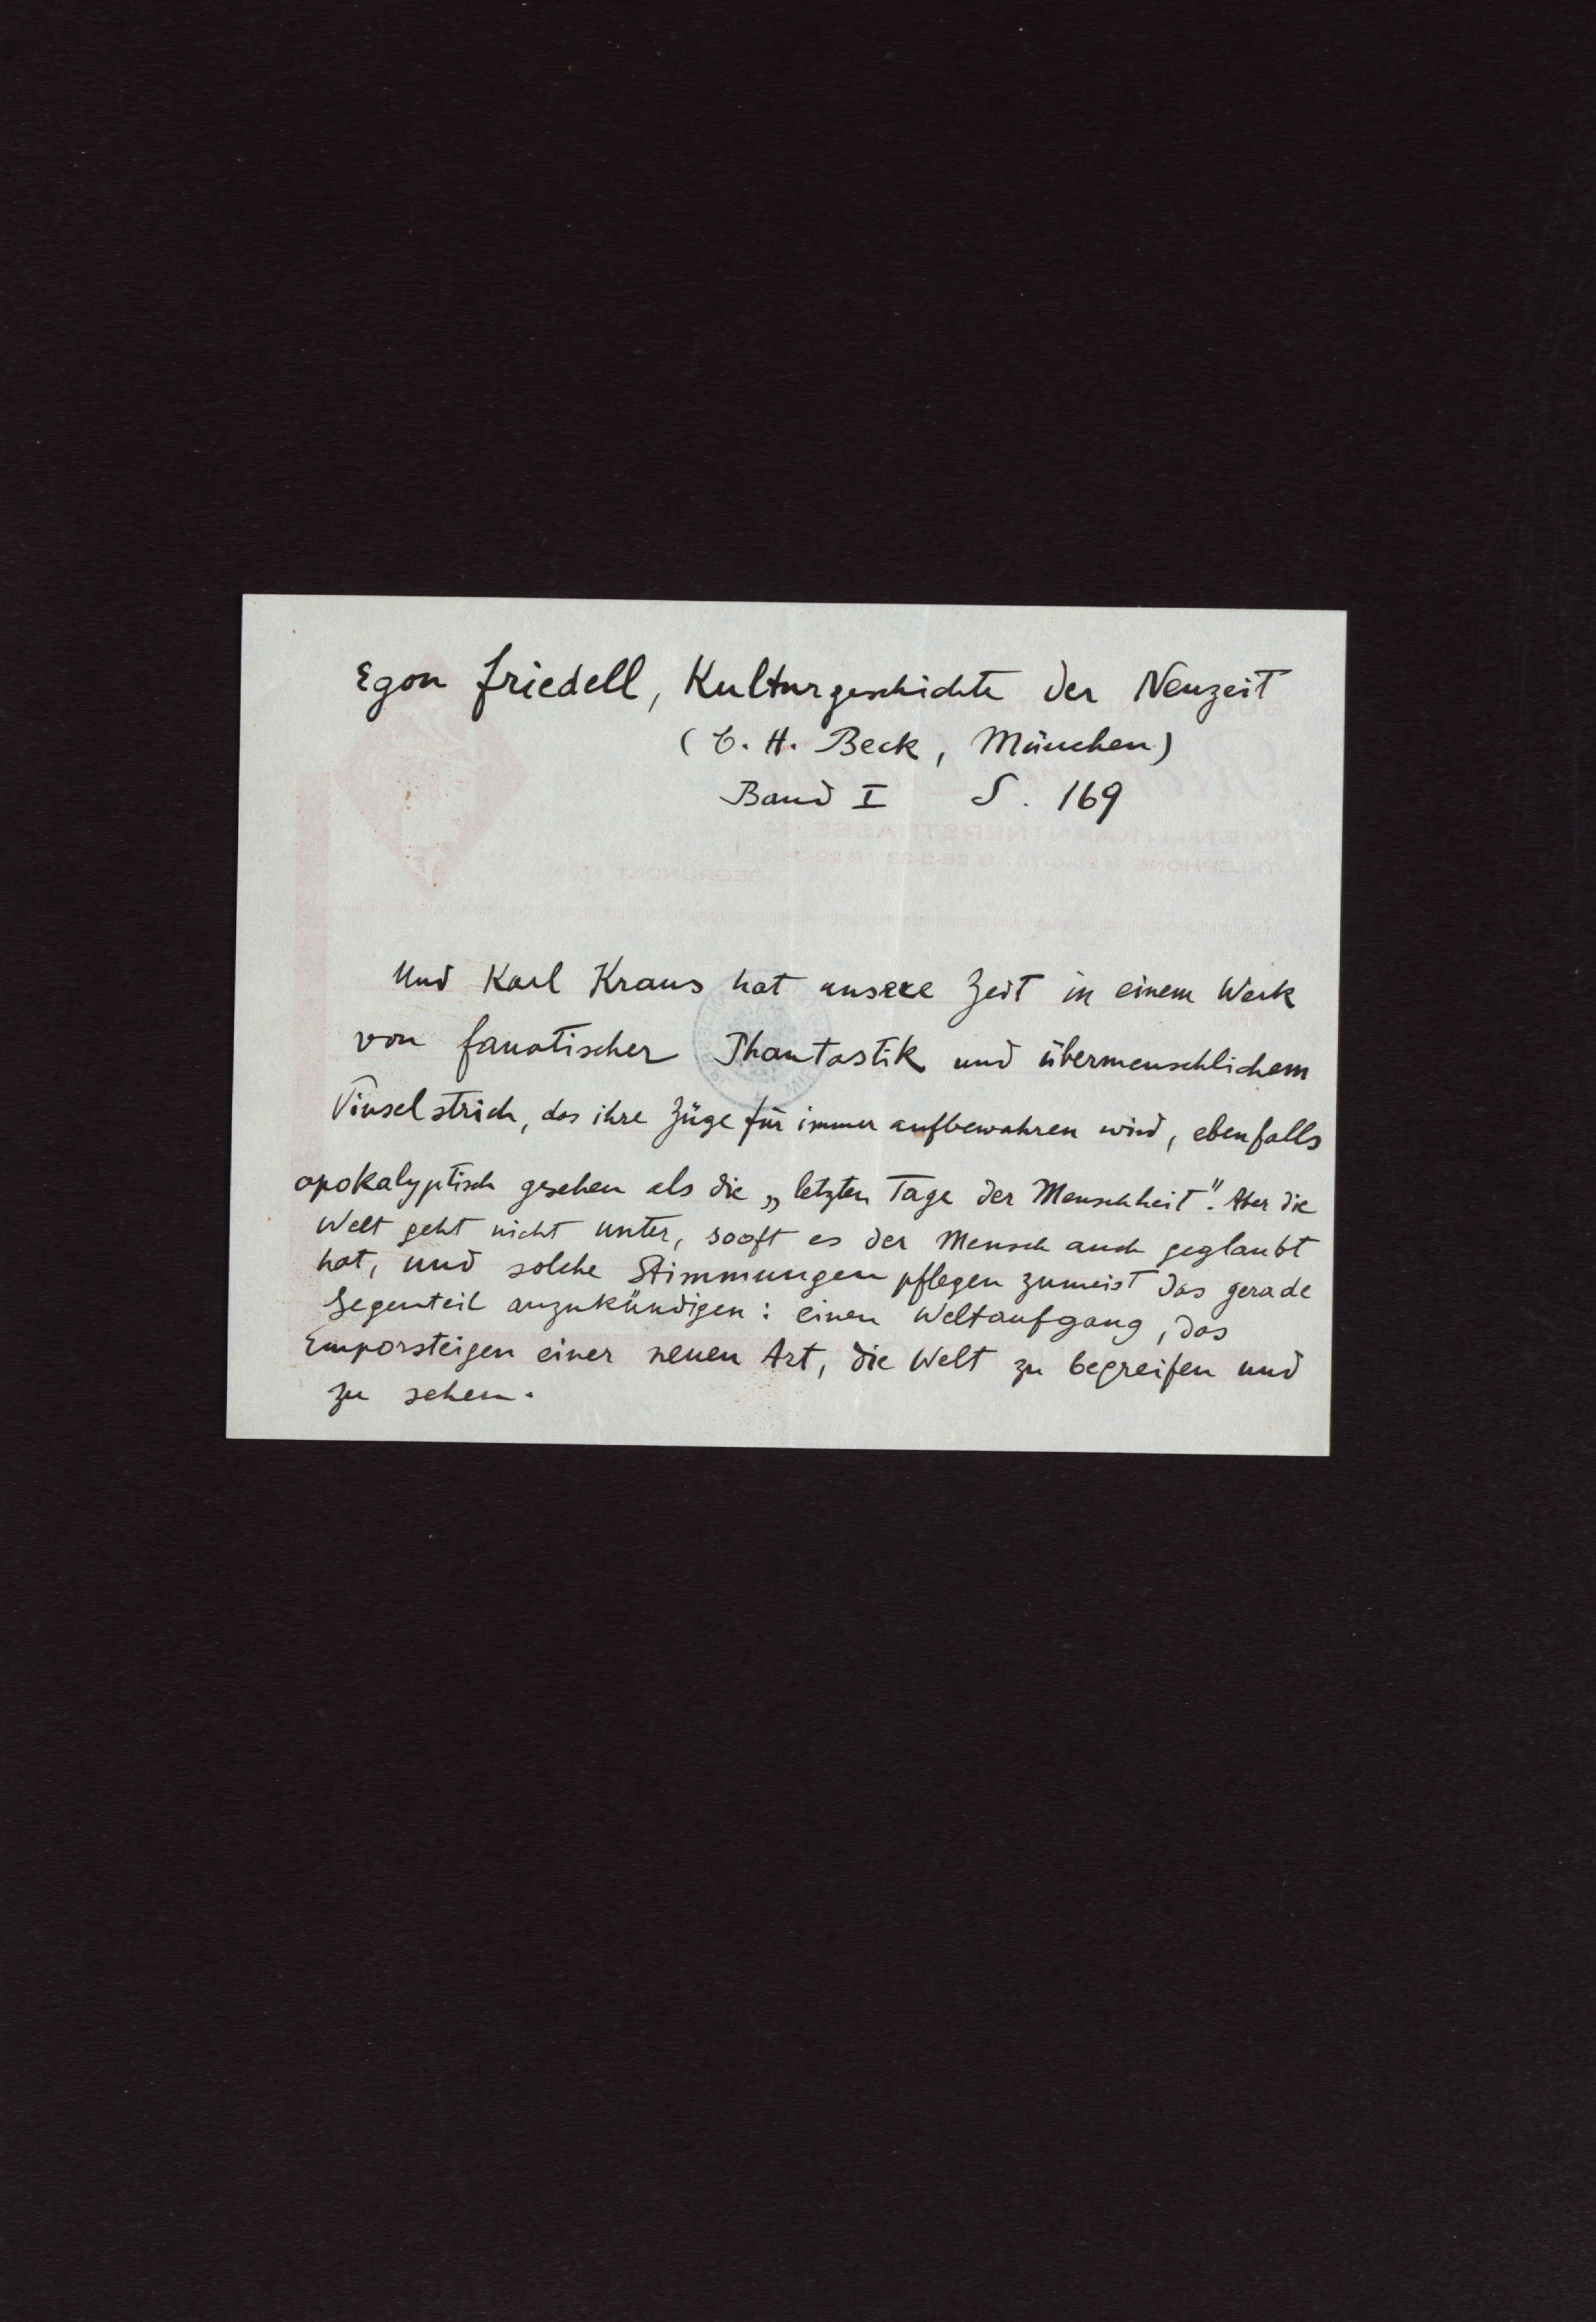 Egon Friedell, Kulturgeschichte der Neuzeit
(C. H. Beck, München)
Band I S. 169
Und Karl Kraus hat unsere Zeit in einem Werk
von fanatischer Phantastik und übermenschlichem
Pinselstrich, das ihre Züge für immer aufbewahren wird, ebenfalls
apokalyptisch gesehen als die „letzten Tage der Menschheit". Aber die
Welt geht nicht unter, sooft es der Mensch auch geglaubt
hat, und solche Stimmungen pflegen zumeist das gerade
Gegenteil anzukündigen: einen Weltaufgang, das
Emporsteigen einer neuen Art, die Welt zu begreifen und
zu sehen.